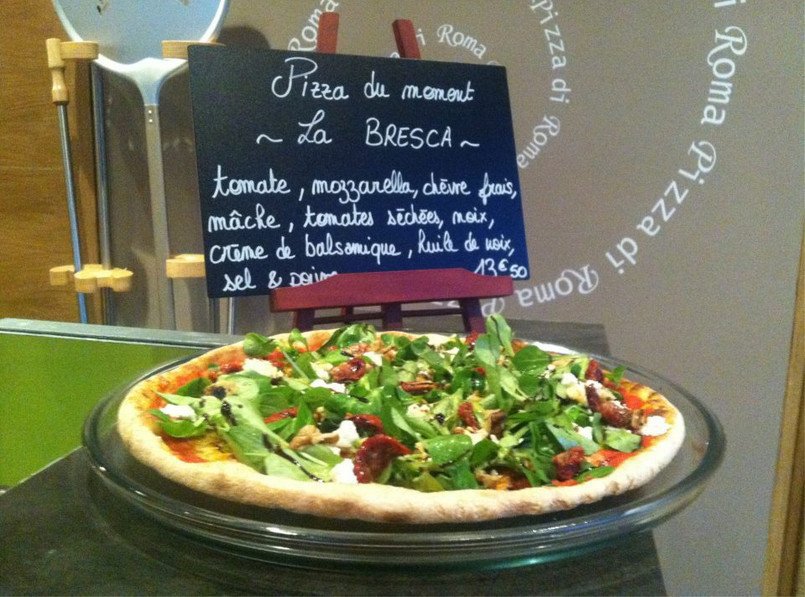 Pizza du moment
~ La BRESCA ~
tomate, mozzarella, chèvre frais,
mâche, tomates séchées, noix,
crème de balsamique, huile de noix,
sel & poivre 13€50
Roma
Pizza di Roma
Roma Pizza di Roma